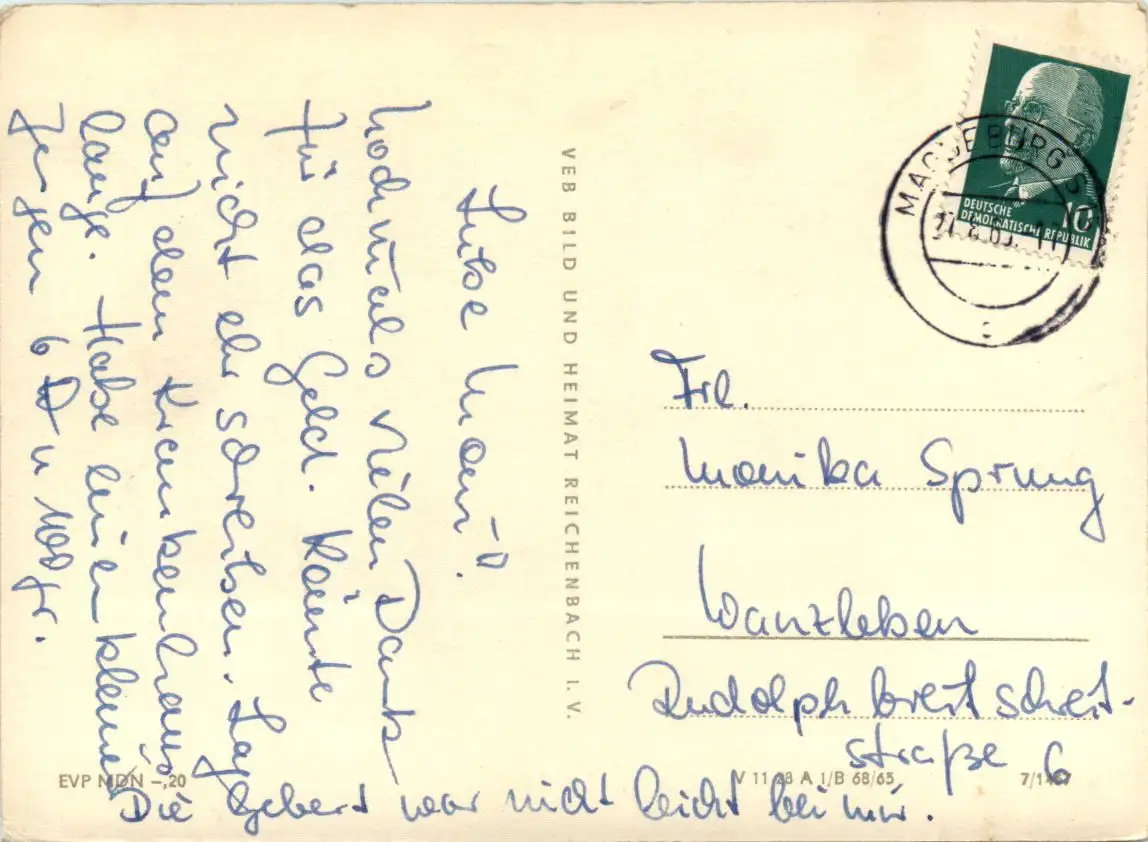 Liebe Moni!
nochmals vielen Dank
für das Geld. Konnte
nicht ehr schreiben. Lag
auf dem Krankenhaus
lange. Habe einen kleinen
Jungen 6 u 100 gr.
Die Geburt war nicht leicht bei mir.
VEB BILD UND HEIMAT REICHENBACH I. V.
MAGDEBURG
DEUTSCHE
DEMOKRATISCHE REPUBLIK
10
Frl.
Monika Sprung
Wanzleben
Rudolph breitscheit-
straße 6
EVP MDN –,20
V 11 28 A 1/B 68/65